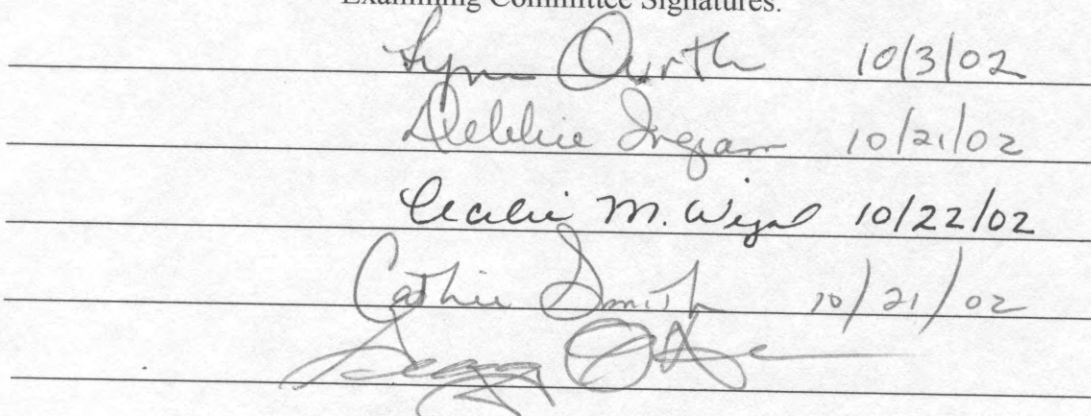 Examining Committee Signatures:
Lynn 10/3/02
Debbie Ingram 10/21/02
Cecilie M. 10/22/02
Cathie Smith 10/21/02